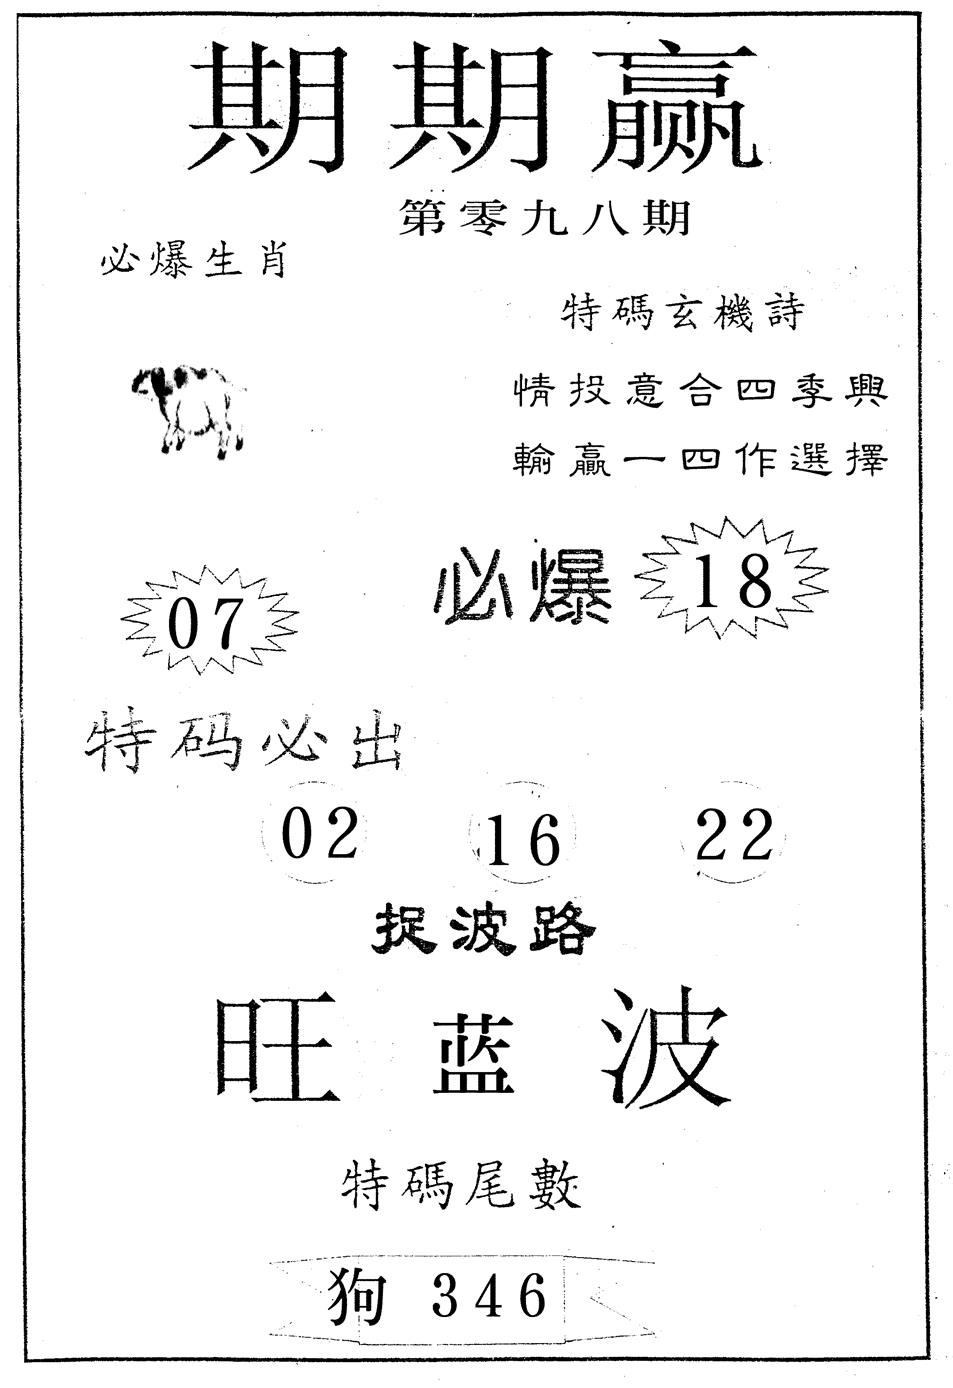 期期赢
第零九八期
必爆生肖
特碼玄機詩
情投意合四季興
輸贏一四作選擇
必爆 18
07
特码必出
02 16 22
捉波路
旺蓝波
特碼尾數
狗 346